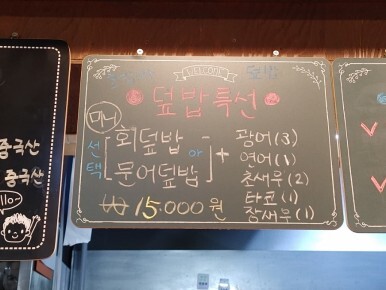 WELCOME
덮밥특선
미니
선택
회덮밥 or
문어덮밥
+
광어(3)
연어(1)
초새우(2)
타코(1)
장새우(1)
₩ 15.000 원
중국산
중국산
llo~